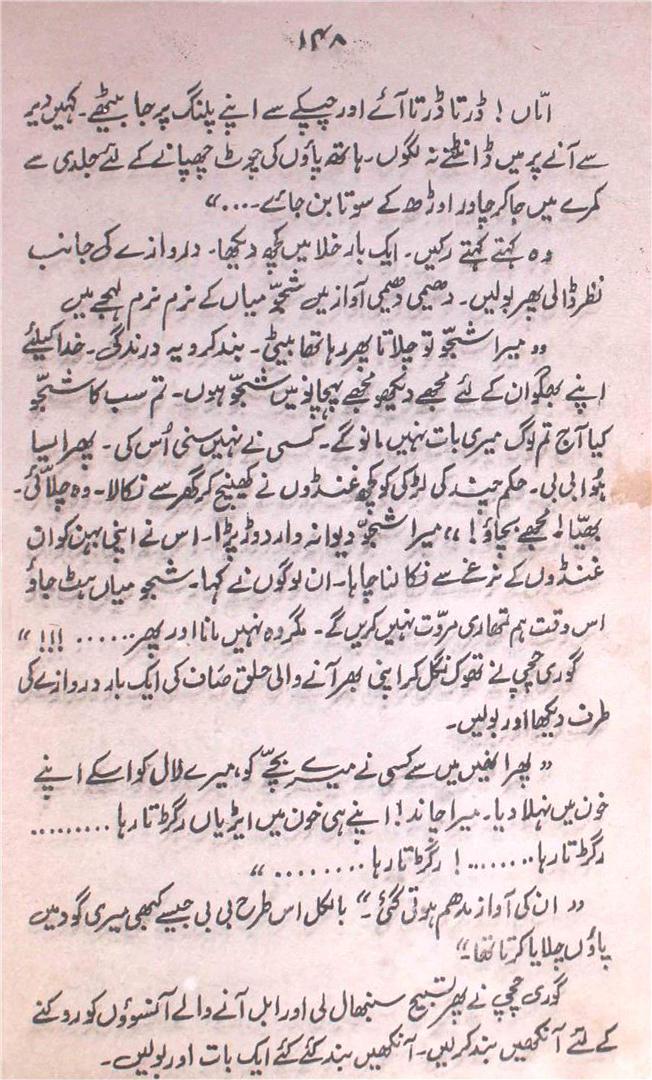 ۱۴۸
امّاں! ڈرتا ڈرتا آئے اور چپکے سے اپنے پلنگ پر جا بیٹھے۔ کہیں دیر
سے آنے پر میں ڈانٹنے نہ لگوں۔ ہاتھ پاؤں کی چوٹ چھپانے کے لئے جلدی سے
کمرے میں جا کر چادر اوڑھ کے سوتا بن جائے۔...“
وہ کہتے کہتے رکیں۔ ایک بار خلا میں کچھ دیکھا۔ دروازے کی جانب
نظر ڈالی پھر بولیں۔ دھیمی دھیمی آواز میں شجوّ میاں کے نرم نرم لہجے میں
”میرا شجوّ تو چلاتا پھر رہا تھا بیٹی۔ بند کرو یہ درندگی۔ خدا کیلئے
اپنے بھگوان کے لئے مجھے دیکھو مجھے پہچانو میں شجوّ ہوں۔ تم سب کا شجوّ
کیا آج تم لوگ میری بات نہیں مانو گے۔ کسی نے نہیں سنی اُس کی۔ پھر ایسا
ہُوا بی بی۔ حکم چند کی لڑکی کو کچھ غنڈوں نے کھینچ کر گھر سے نکالا۔ وہ چلاّئی۔
بھیّا! مجھے بچاؤ!“ میرا شجوّ دیوانہ وار دوڑ پڑا۔ اس نے اپنی بہن کو ان
غنڈوں کے نرغے سے نکالنا چاہا۔ ان لوگوں نے کہا۔ شجو میاں ہٹ جاؤ
اس وقت ہم تمھاری مروّت نہیں کریں گے۔ مگر وہ نہیں مانا اور پھر...... !!!“
گوری چچی نے تھوک نگل کر اپنی بھر آنے والی حلق صاف کی ایک بار دروازے کی
طرف دیکھا اور بولیں۔
”پھر انھیں میں سے کسی نے میرے بچےّ کو، میرے لال کو اسکے اپنے
خون میں نہلا دیا۔ میرا چاند! اپنے ہی خون میں ایڑیاں رگڑتا رہا .........
رگڑتا رہا........! رگڑتا رہا.........“
”ان کی آواز مدھم ہوتی گئی۔“ بالکل اس طرح بی بی جیسے کبھی میری گود میں
پاؤں چلایا کرتا تھا۔“
گوری چچی نے پھر تسبیح سنبھال لی اور ابل آنے والے آنسوؤں کو روکنے
کے لئے آنکھیں بند کر لیں۔ آنکھیں بند کئے کئے ایک بات اور بولیں۔